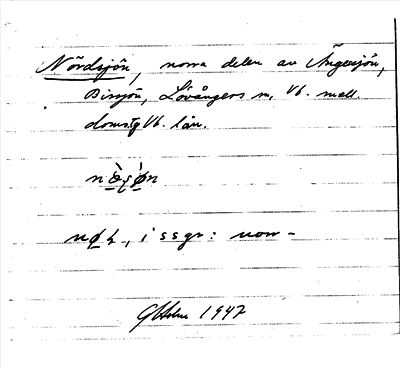 Nördsjön, norra delen av Ängesjön,
Bissjön, Lövångers sn, Vb. mell.
doms Vb. län.
i ssgr: norr-
GHolm 1947